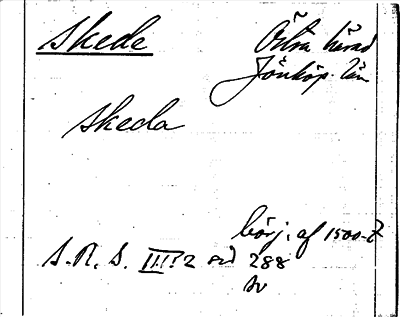 Skede
Östra härad
Jönköp. län
Skeda
börj. af 1500-t
S.R.S. III:2 sid 288
sv